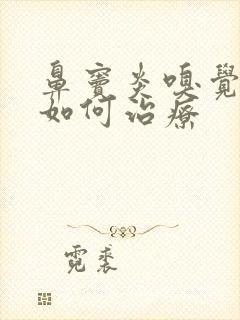 鼻窦炎嗅覺
如何治療
霓裘